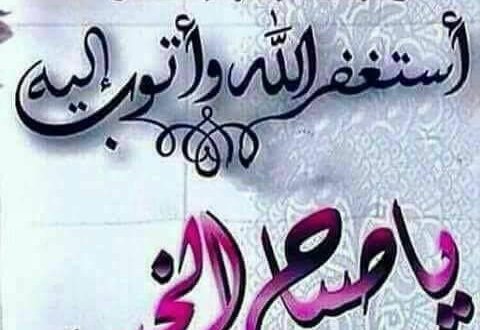 أستغفر الله وأتوب إليه
يا صباح الخير